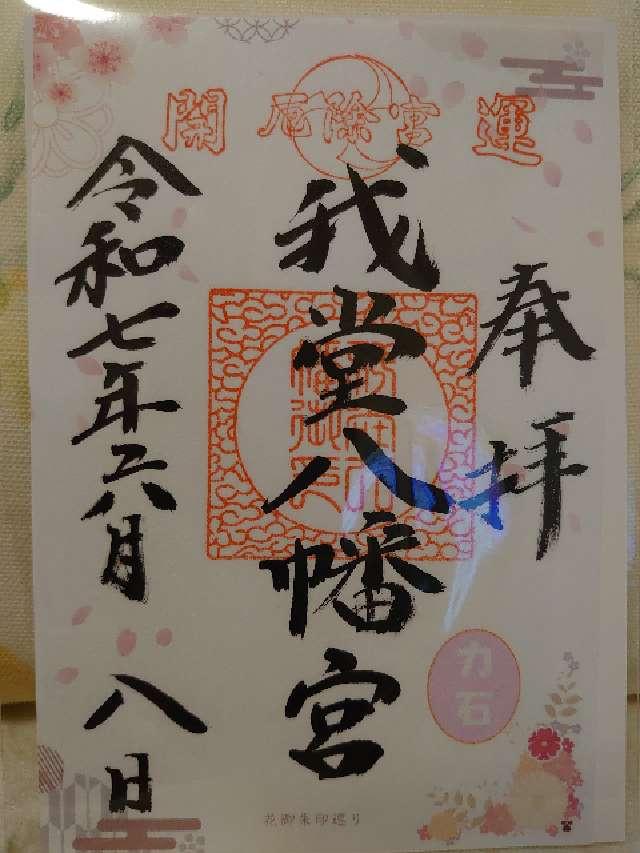 開 厄除宮 運
奉拝
我堂八幡宮
令和七年六月八日
力石
花御朱印巡り